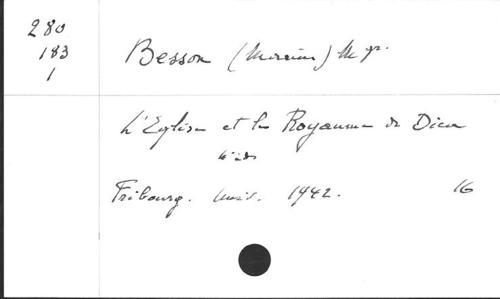 280
183
1
Besson (Marius) Mgr.
L'Eglise et le Royaume de Dieu
Fribourg. 1942. 16